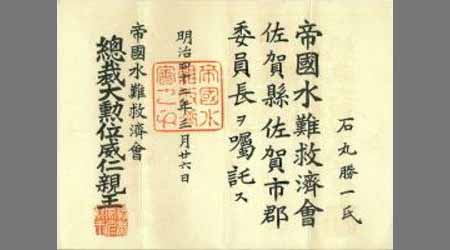 石丸勝一氏
帝國水難救濟會
佐賀縣佐賀市郡
委員長ヲ囑託ス
明治四十二年三月廿六日
帝國水難救濟會
總裁大勲位威仁親王